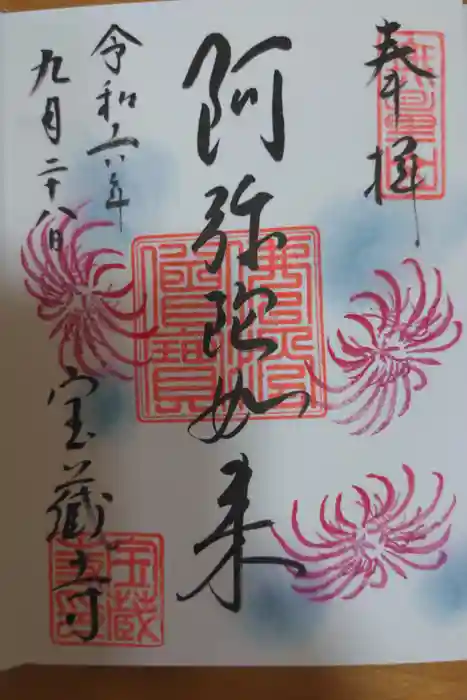 奉拝
阿弥陀如来
令和六年
九月二十八日
宝蔵寺